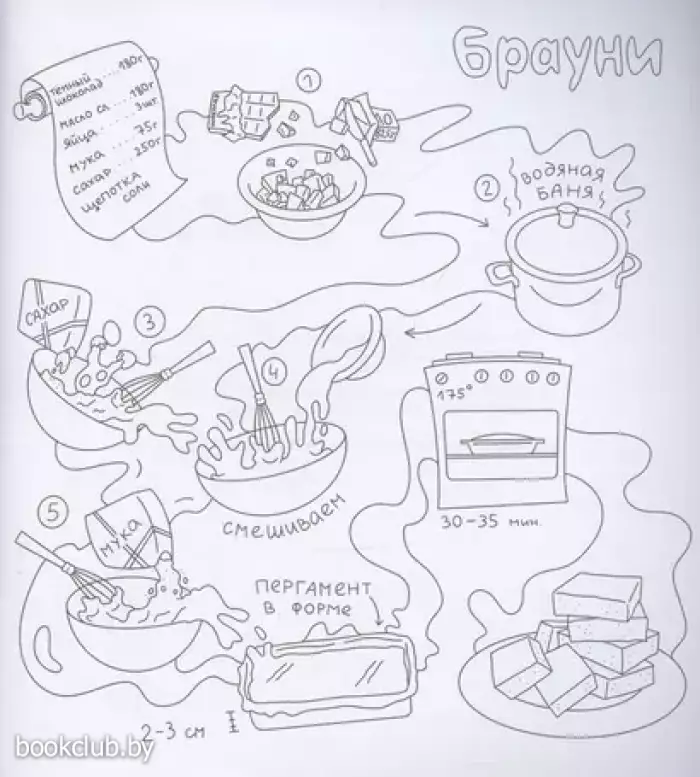 Брауни
Темный
шоколад ... 180г
Масло сл. ... 180г
Яйца ... 3 шт.
Мука ... 75г
Сахар ... 250г
Щепотка
соли
1
2
Водяная
баня
Сахар
3
4
175°
смешиваем
30-35 мин.
5
Мука
Пергамент
в форме
2-3 см
bookclub.by